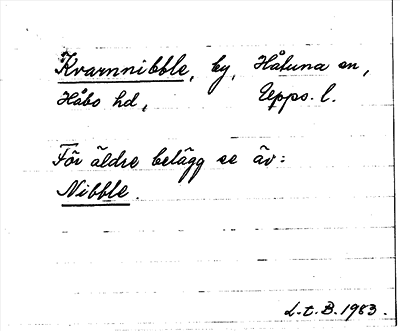 Kvarnnibble, by, Håtuna sn,
Håbo hd, Upps. l.
För äldre belägg se äv:
Nibble.
L.t.B. 1983.